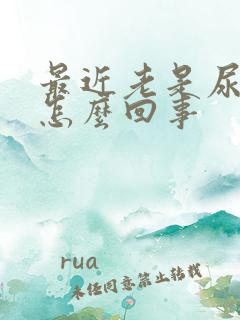 最近老是尿
怎麼回事
rua
未經同意禁止轉載